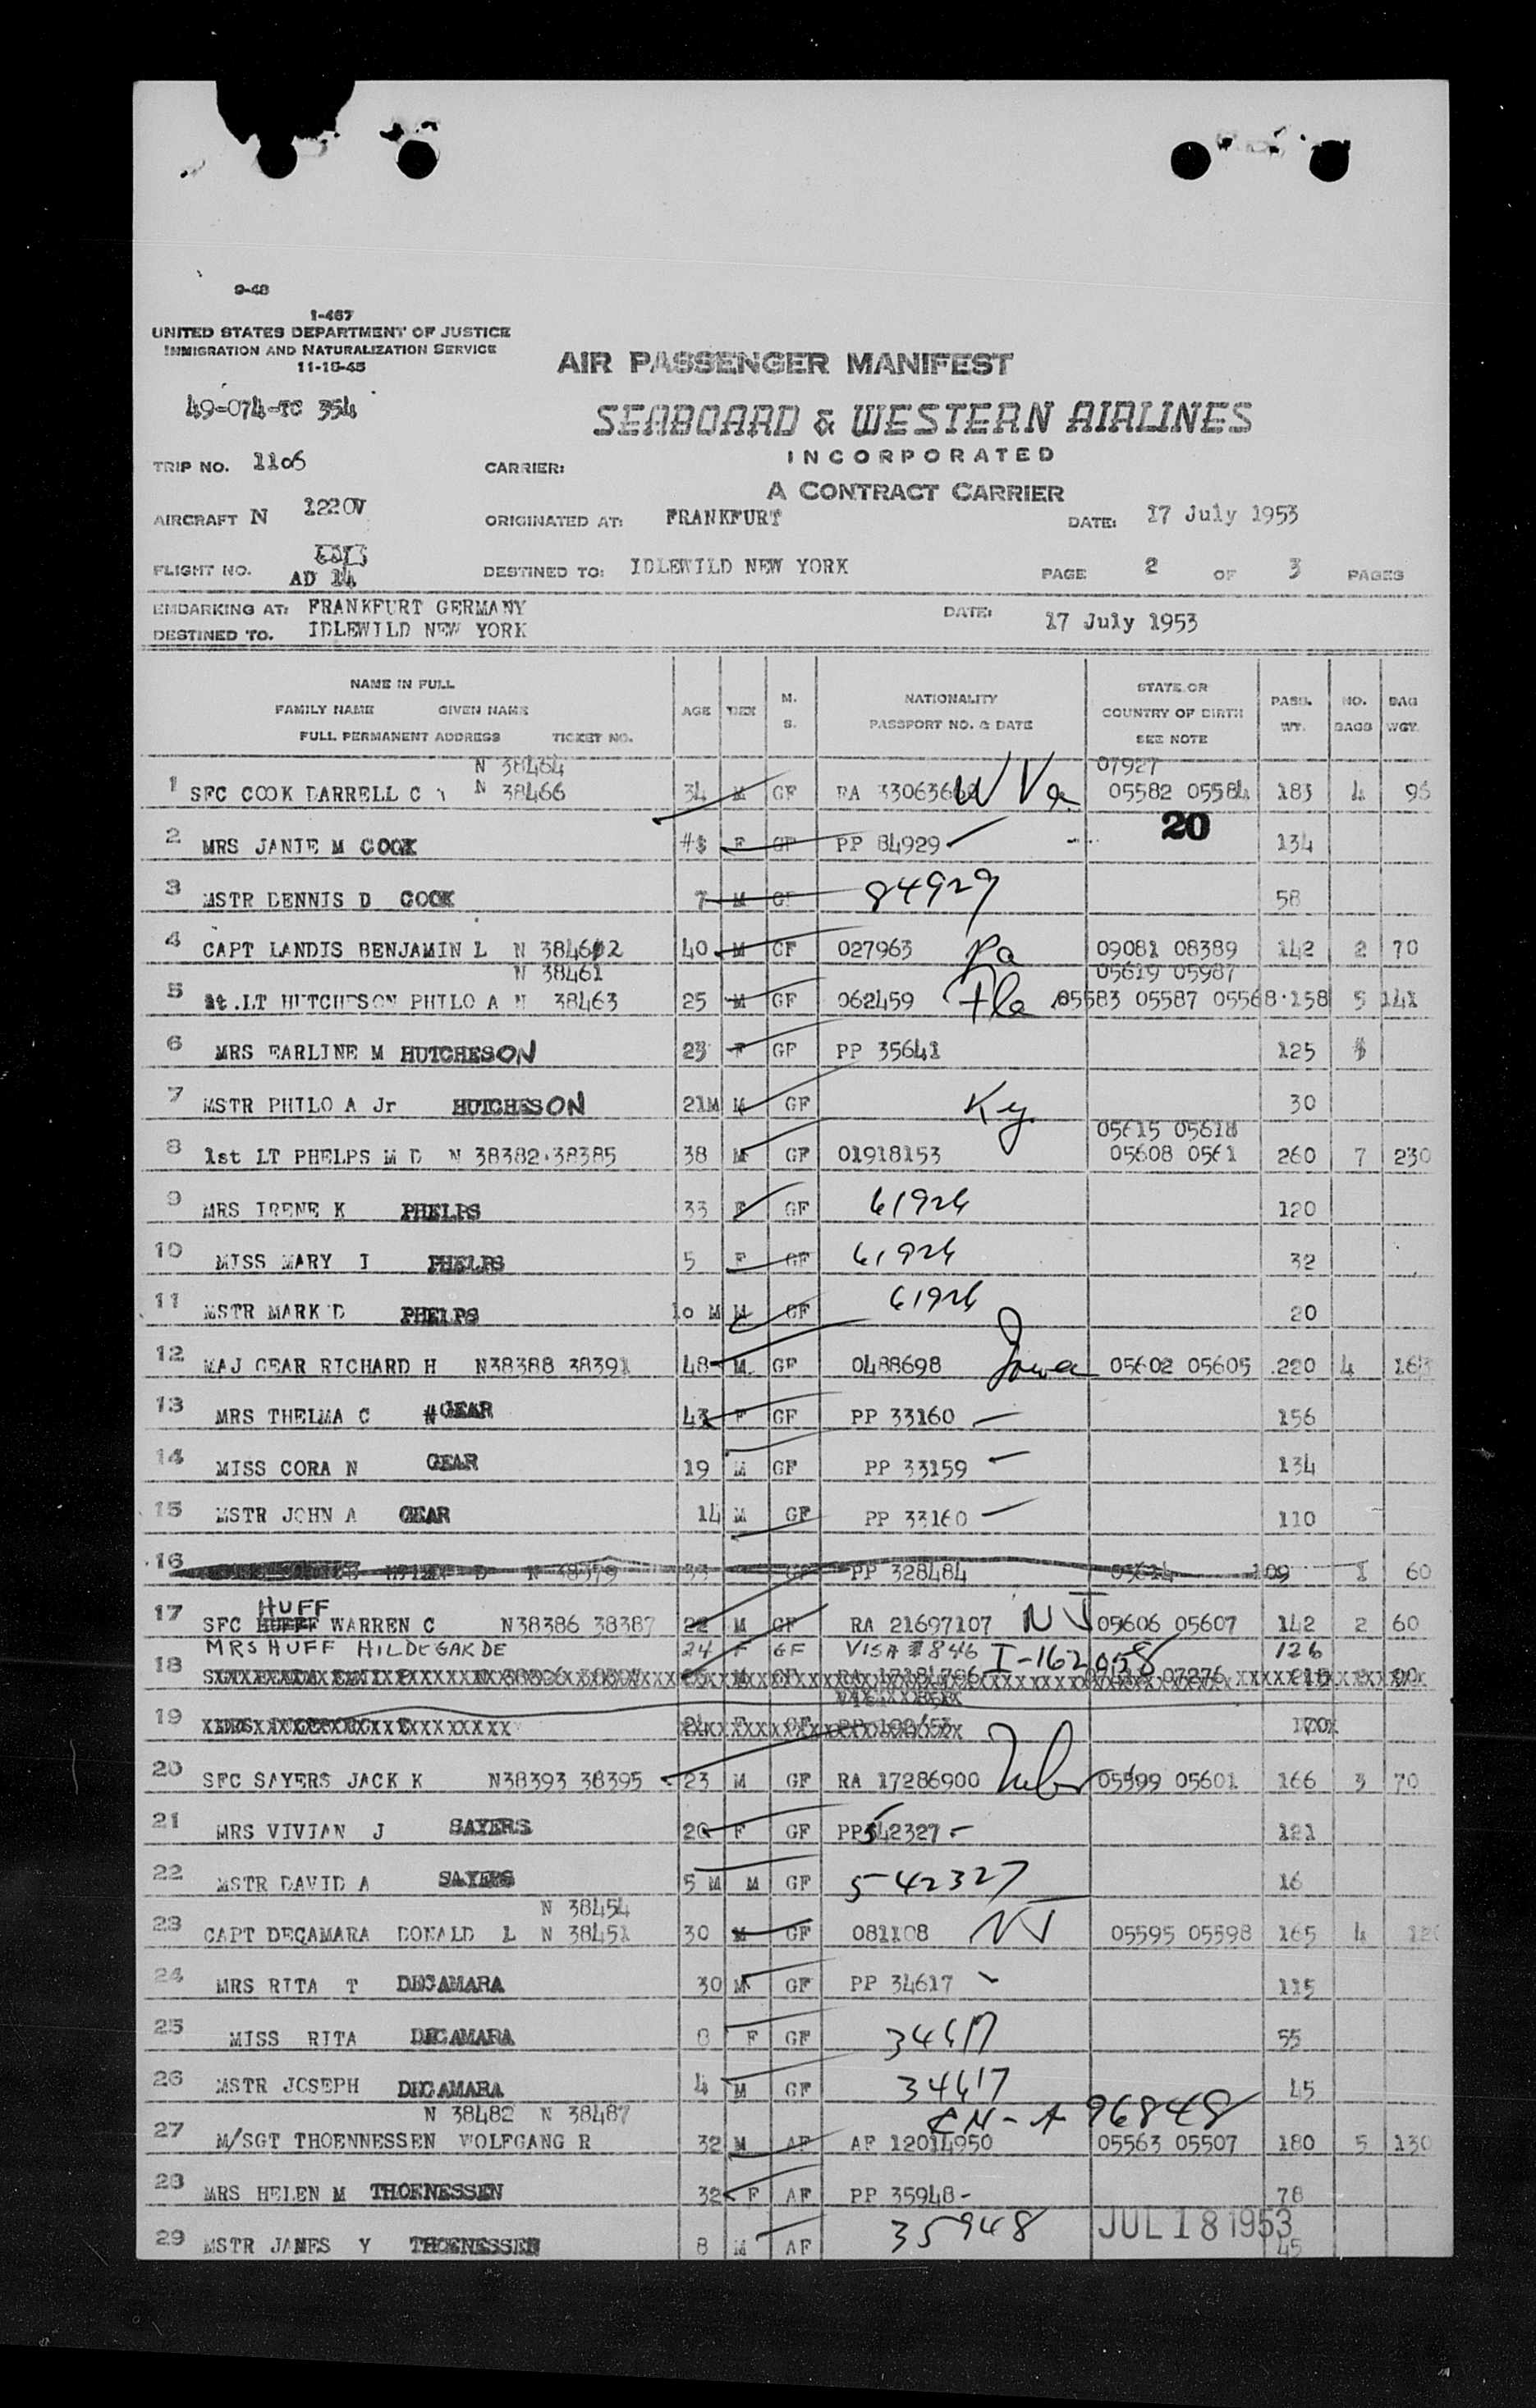 9-48
1-467
UNITED STATES DEPARTMENT OF JUSTICE
IMMIGRATION AND NATURALIZATION SERVICE
11-15-45
AIR PASSENGER MANIFEST
49-074-TC 354
SEABOARD & WESTERN AIRLINES
INCORPORATED
TRIP NO. 1106 CARRIER:
A CONTRACT CARRIER
AIRCRAFT N 1220V ORIGINATED AT: FRANKFURT DATE: 17 July 1953
FLIGHT NO. AD 14 DESTINED TO: IDLEWILD NEW YORK PAGE 2 OF 3 PAGES
EMBARKING AT: FRANKFURT GERMANY DATE: 17 July 1953
DESTINED TO. IDLEWILD NEW YORK
NAME IN FULL
FAMILY NAME GIVEN NAME
FULL PERMANENT ADDRESS TICKET NO.
AGE SEX M. S.
NATIONALITY
PASSPORT NO. & DATE
STATE OR
COUNTRY OF BIRTH
SEE NOTE
PASS. WT. NO. BAGS BAG WGT.
N 38464 07927
1 SFC COOK DARRELL C N 38466 34 M GF RA W Va 05582 05584 183 4 96
20
2 MRS JANIE M COOK F GF PP 84929 134
3 MSTR DENNIS D COOK 7 M GF 84929 58
4 CAPT LANDIS BENJAMIN L N 40 M GF 027963 Pa 09081 08389 142 2 70
N 38461 05619 05987
5 1t.LT HUTCHESON PHILO A N 38463 25 M GF 062459 Fla 05583 05587 05568 158 5 141
6 MRS EARLINE M HUTCHESON 23 F GF PP 35641 125
7 MSTR PHILO A Jr HUTCHESON 21M M GF Ky. 30
05615 05618
8 1st LT PHELPS M D N 38382-38385 38 M GF 01918153 05608 0561 260 7 230
9 MRS IRENE K PHELPS 33 F GF 61926 120
10 MISS MARY I PHELPS 5 F GF 61926 32
11 MSTR MARK D PHELPS 10 M M GF 61926 20
12 MAJ GEAR RICHARD H N38388 38391 48 M GF 0488698 Iowa 05602 05605 220 4 163
13 MRS THELMA C GEAR 43 F GF PP 33160 156
14 MISS CORA N GEAR 19 M GF PP 33159 134
15 MSTR JOHN A GEAR 14 M GF PP 33160 110
16 D N 38379 33 GF PP 328484 05614 109 1 60
17 SFC HUFF WARREN C N38386 38387 22 M GF RA 21697107 NJ 05606 05607 142 2 60
MRS HUFF HILDEGARDE 24 F GF VISA # 846 I-162058 126
18
19
20 SFC SAYERS JACK K N38393 38395 23 M GF RA 17286900 Nebr 05599 05601 166 3 70
21 MRS VIVIAN J SAYERS 20 F GF PP 542327 121
22 MSTR DAVID A SAYERS 5 M M GF 542327 16
N 38454
23 CAPT DECAMARA DONALD L N 38451 30 M GF 081108 NJ 05595 05598 165 4 120
24 MRS RITA T DECAMARA 30 M GF PP 34617 115
25 MISS RITA DECAMARA 8 F GF 34617 55
26 MSTR JOSEPH DECAMARA 4 M GF 34617 45
N 38482 N 38487 CN-A 96848
27 M/SGT THOENNESSEN WOLFGANG R 32 M AF AF 12014950 05563 05507 180 5 130
28 MRS HELEN M THOENESSEN 32 F AF PP 35948- 78
JUL 18 1953
29 MSTR JAMES Y THOENESSEN 8 M AF 35948 45